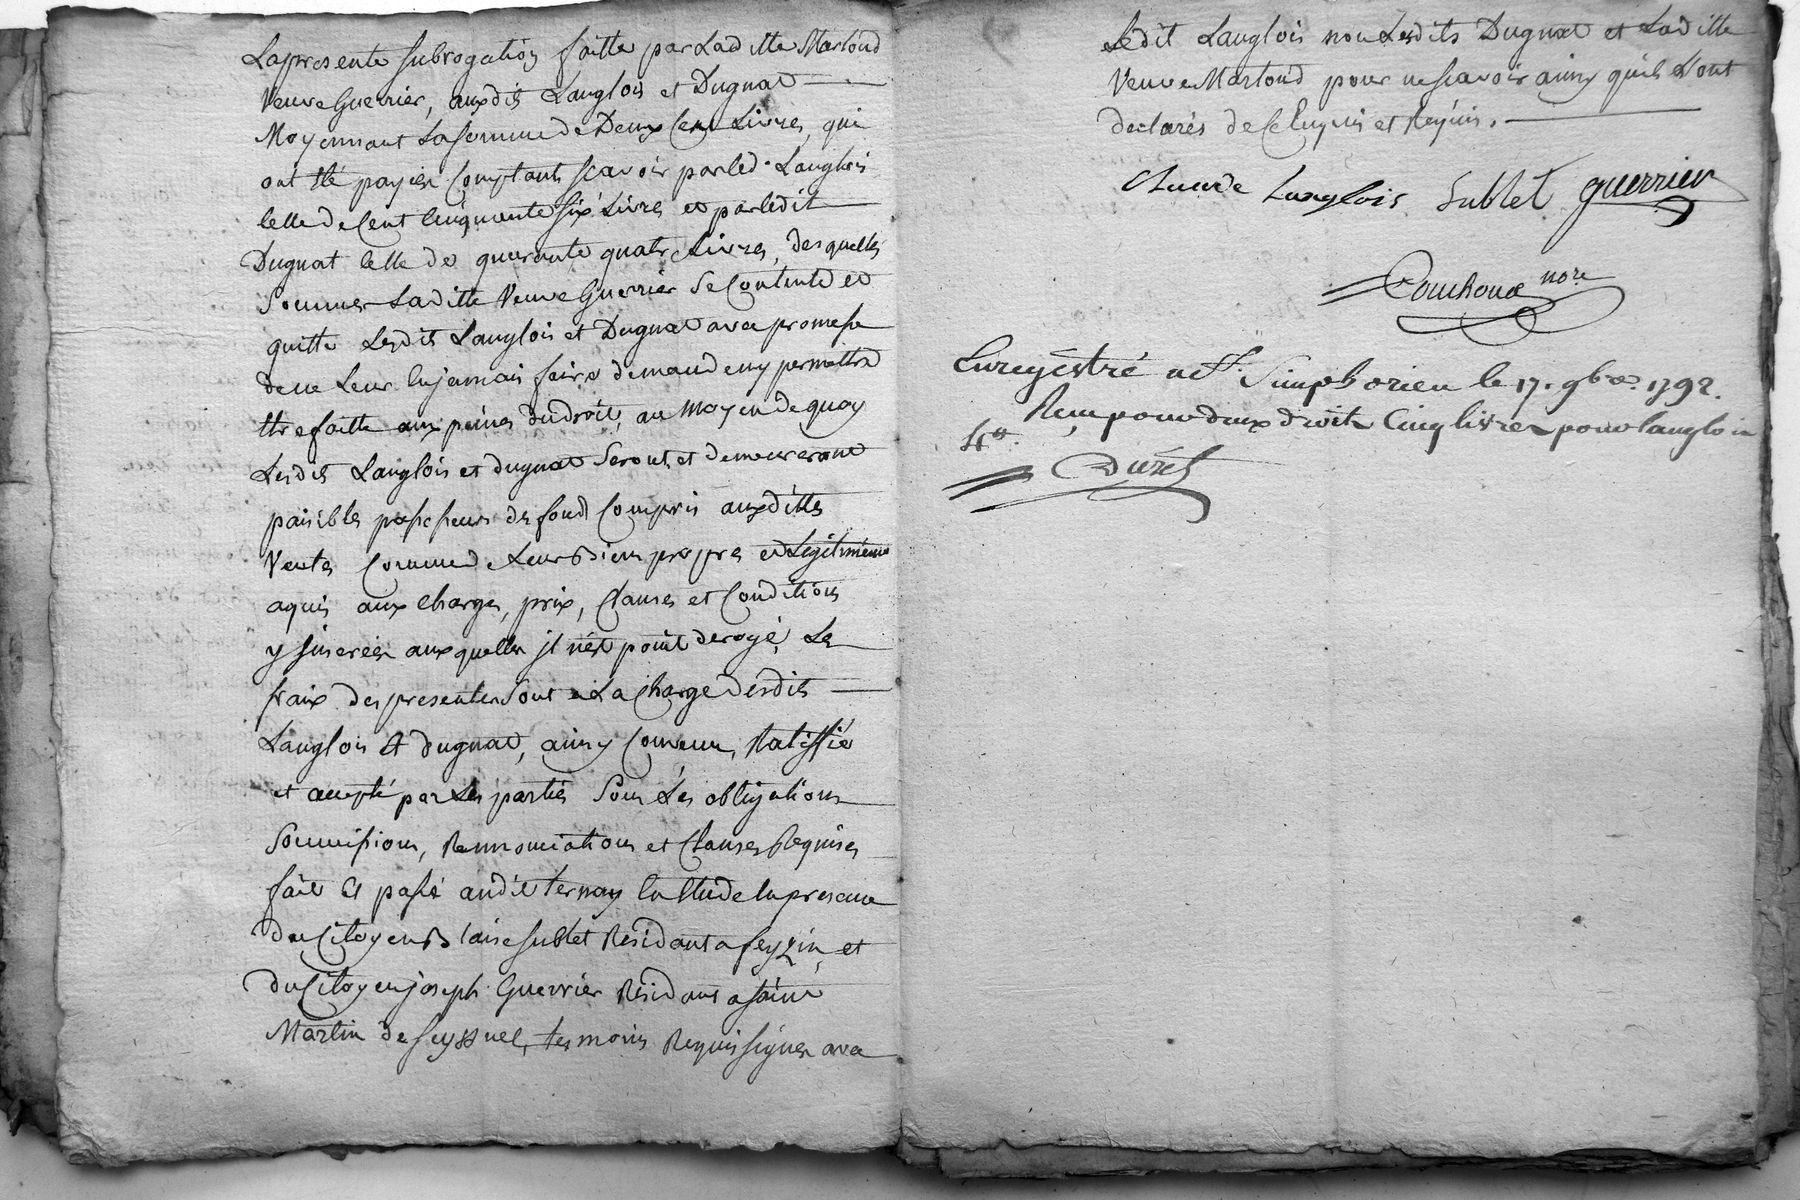 La presente subrogation faitte par Laditte Marloud
Veuve Guerrier, auxdits Langlois et Dugnat
Moyennant La somme de Deux Cent Livres, qui
ont été payées Comptants scavoir par led. Langlois
Celle de Cent Cinquante six Livres et par ledit
Dugnat Celle de quarante quatre Livres, desquelles
Sommes Laditte Veuve Guerrier Se Contente et
quitte Lesdits Langlois et Dugnat avec promesse
de ne Leur en jamais faire demande ny permettre
être faitte aux peines du droit, au Moyen de quoy
Lesdits Langlois et dugnat Seront et demeureront
paisibles possesseurs des fonds Compris auxdittes
Ventes Comme de Leurs Biens propres et Légitimement
aquis aux Charges, prix, Clauses et Conditions
y inserées auxquelles jl n'est point derogé, Les
fraix des presentes Sont à La Charge desdits
Langlois et dugnat, ainsy Convenu, Ratiffié
et accepté par Les parties Sous Les obligations
Soumissions, Rennonciations et Clauses Requises
fait et passé audit ternay En Etude En presence
du Citoyen Blaise Sublet Residant a feyzin, et
du Citoyen joseph Guerrier Residant a saint
Martin de Seyssuel, temoins Requis signés avec
Ledit Langlois non Lesdits Dugnat et Laditte
Veuve Marloud pour ne scavoir ainsy quils L'ont
declarés de Ce Enquis et Requis.
Claude Langlois Sublet guerrier
Couchoud nore
Enregistré a St. Simphorien le 17. 9bre. 1792.
Reçu pour deux droits Cinq livres pour langlois
4tt.
Durel